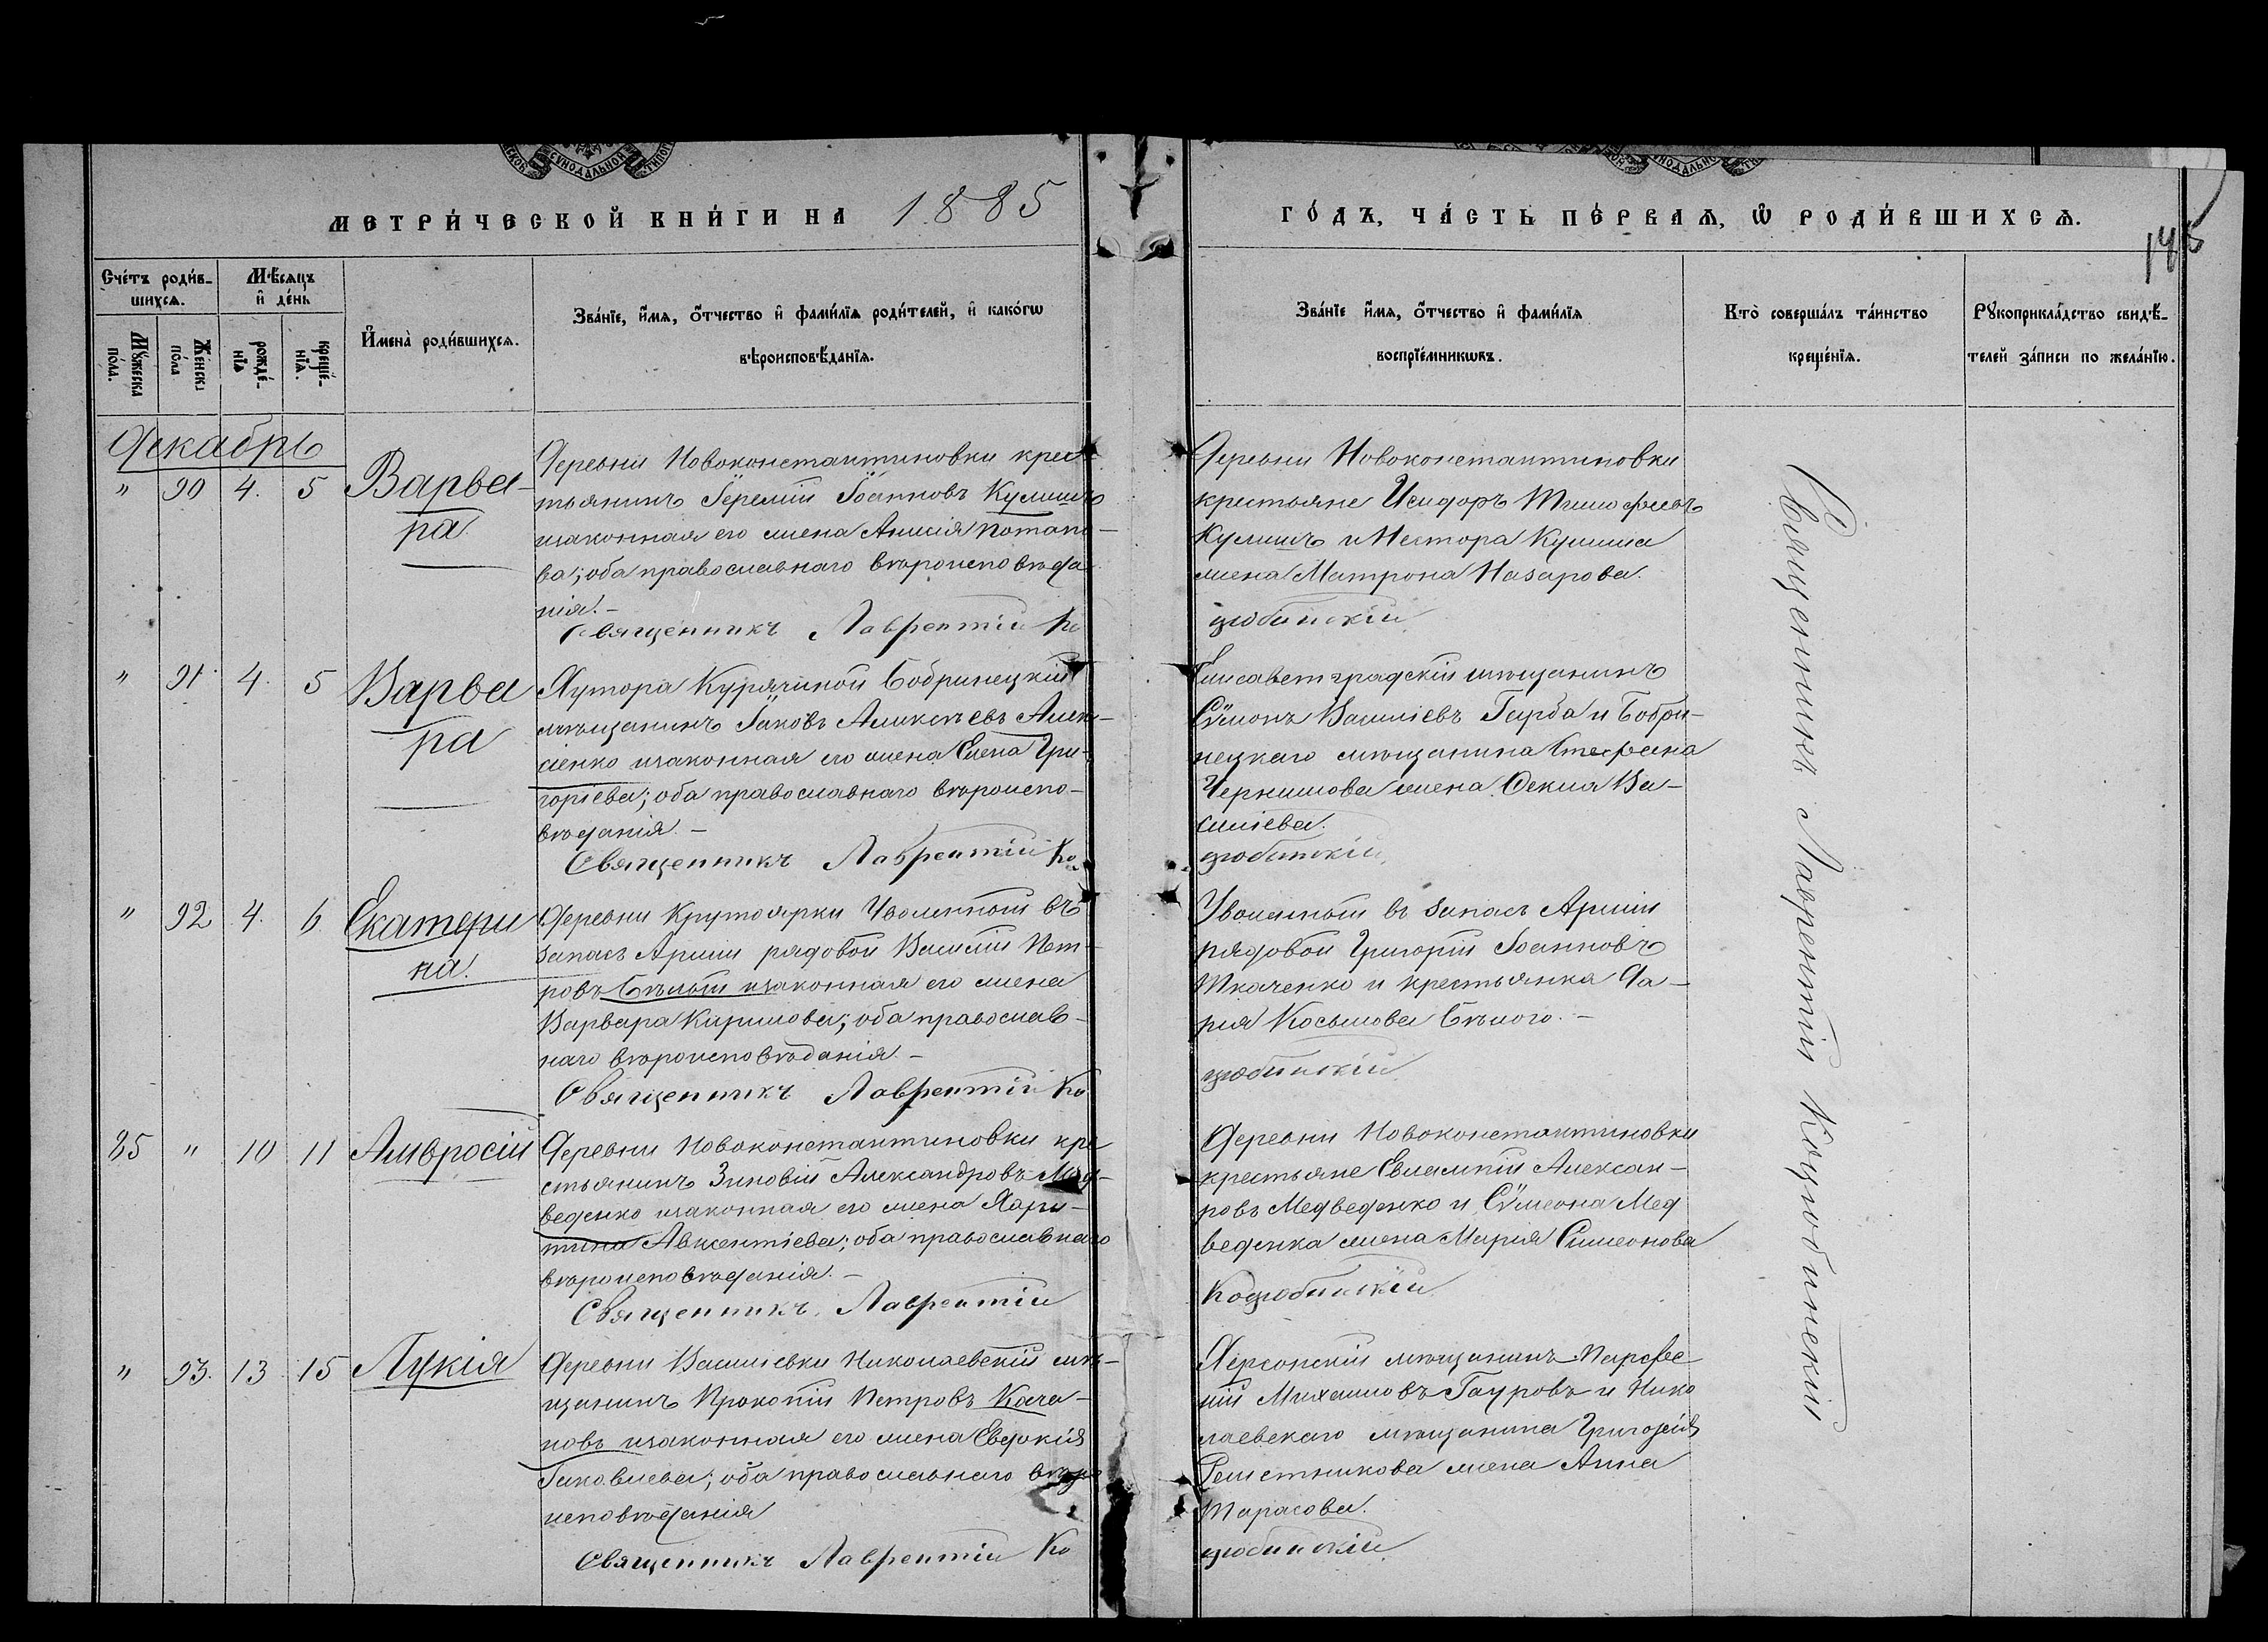 МЕТРИ́ЧЕСКОЙ КНИ́ГИ НА 1885
ГО́ДЪ, ЧА́СТЬ ПЕ́РВАѦ, Ѡ҆ РОДИ́ВШИХСѦ.
145
Сче́тъ роди́в-
шихсѧ.
Мѣ́сѧцъ
и҆ де́нь
И҆мена̀ роди́вшихсѧ.
Зва́нїе, и҆́мѧ, ѻ҆́тчество и҆ фами́лїѧ роди́телей, и҆ како́гѡ
вѣроисповѣ́данїѧ.
Мꙋ́жеска
по́ла.
Же́нска
по́ла
рожде́-
нїѧ
креще́-
нїѧ.
Зва́нїе и҆́мѧ, ѻ҆́тчество и҆ фами́лїѧ
воспрїе́мникѡвъ.
Кто̀ соверша́лъ та́инство
креще́нїѧ.
Рꙋкоприкла́дство свидѣ́-
телей за́писи по жела́нїю.
Декабрь
" 90 4. 5 Варва-
ра
Деревни Новоконстантиновки крес-
тьянинъ Іеремій Іоанновъ Кулишъ
изаконная его жена Анисія Потапо-
ва; оба православнаго вѣроисповѣда-
нія.-
Священникъ Лаврентій Ко
Деревни Новоконстантиновки
крестьяне Исидоръ Тимофеевъ
Кулишъ и Нестора Кулиша
жена Матрона Назарова.
цюбинскій
Священникъ Лаврентій Коцюбинскій
" 91. 4. 5 Варва
ра
Хутора Курячиной Бобринецкій
мѣщанинъ Іаковъ Алексѣевъ Алек-
сіенко изаконная его жена Елена Гри-
горіева; оба православнаго вѣроиспо-
вѣданія.-
Священникъ Лаврентій Ко
Елисаветградскій мѣщанинъ
Сѵмонъ Василіевъ Гарба и Бобри-
нецкаго мѣщанина Стефана
Чернишова жена Фекла Ва-
силіева.
цюбинскій
" 92 4. 6 Екатери
на.
Деревни Крутоярки Уволенный въ
запасъ Арміи рядовой Василій Пет-
ровъ Бѣлый изаконная его жена
Варвара Кирилова; оба православ-
наго вѣроисповѣданія.-
Священникъ Лаврентій Ко
Уволенный въ запасъ Арміи
рядовой Григорій Іоанновъ
Ткаченко и крестьянка Да-
рия Косьмова Бѣлого.-
цюбинскій
85 " 10 11 Амвросій
Деревни Новоконстантиновки кре
стьянинъ Зиновій Александровъ Мед-
веденко изаконная его жена Хари-
тина Авксентіева; оба православнаго
вѣроисповѣданія.-
Священникъ Лаврентій
Деревни Новоконстантиновки
крестьяне Евлампій Алексан-
ровъ Медведенко и Сѵмеона Мед
веденка жена Марія Симеонова
Коцюбинскій
" 93. 13 15 Лукія
Деревни Василіевки Николаевскій мѣ-
щанинъ Прокопій Петровъ Кача-
новъ изаконная его жена Евдокія
Іаковлева; оба православнаго вѣро
исповѣданія
Священникъ Лаврентій Ко
Херсонскій мѣщанинъ Парфе-
ній Михаиловъ Гауровъ и Нико
лаевскаго мѣщанина Григорія
Решетникова жена Анна
Тарасова.
цюбинскій